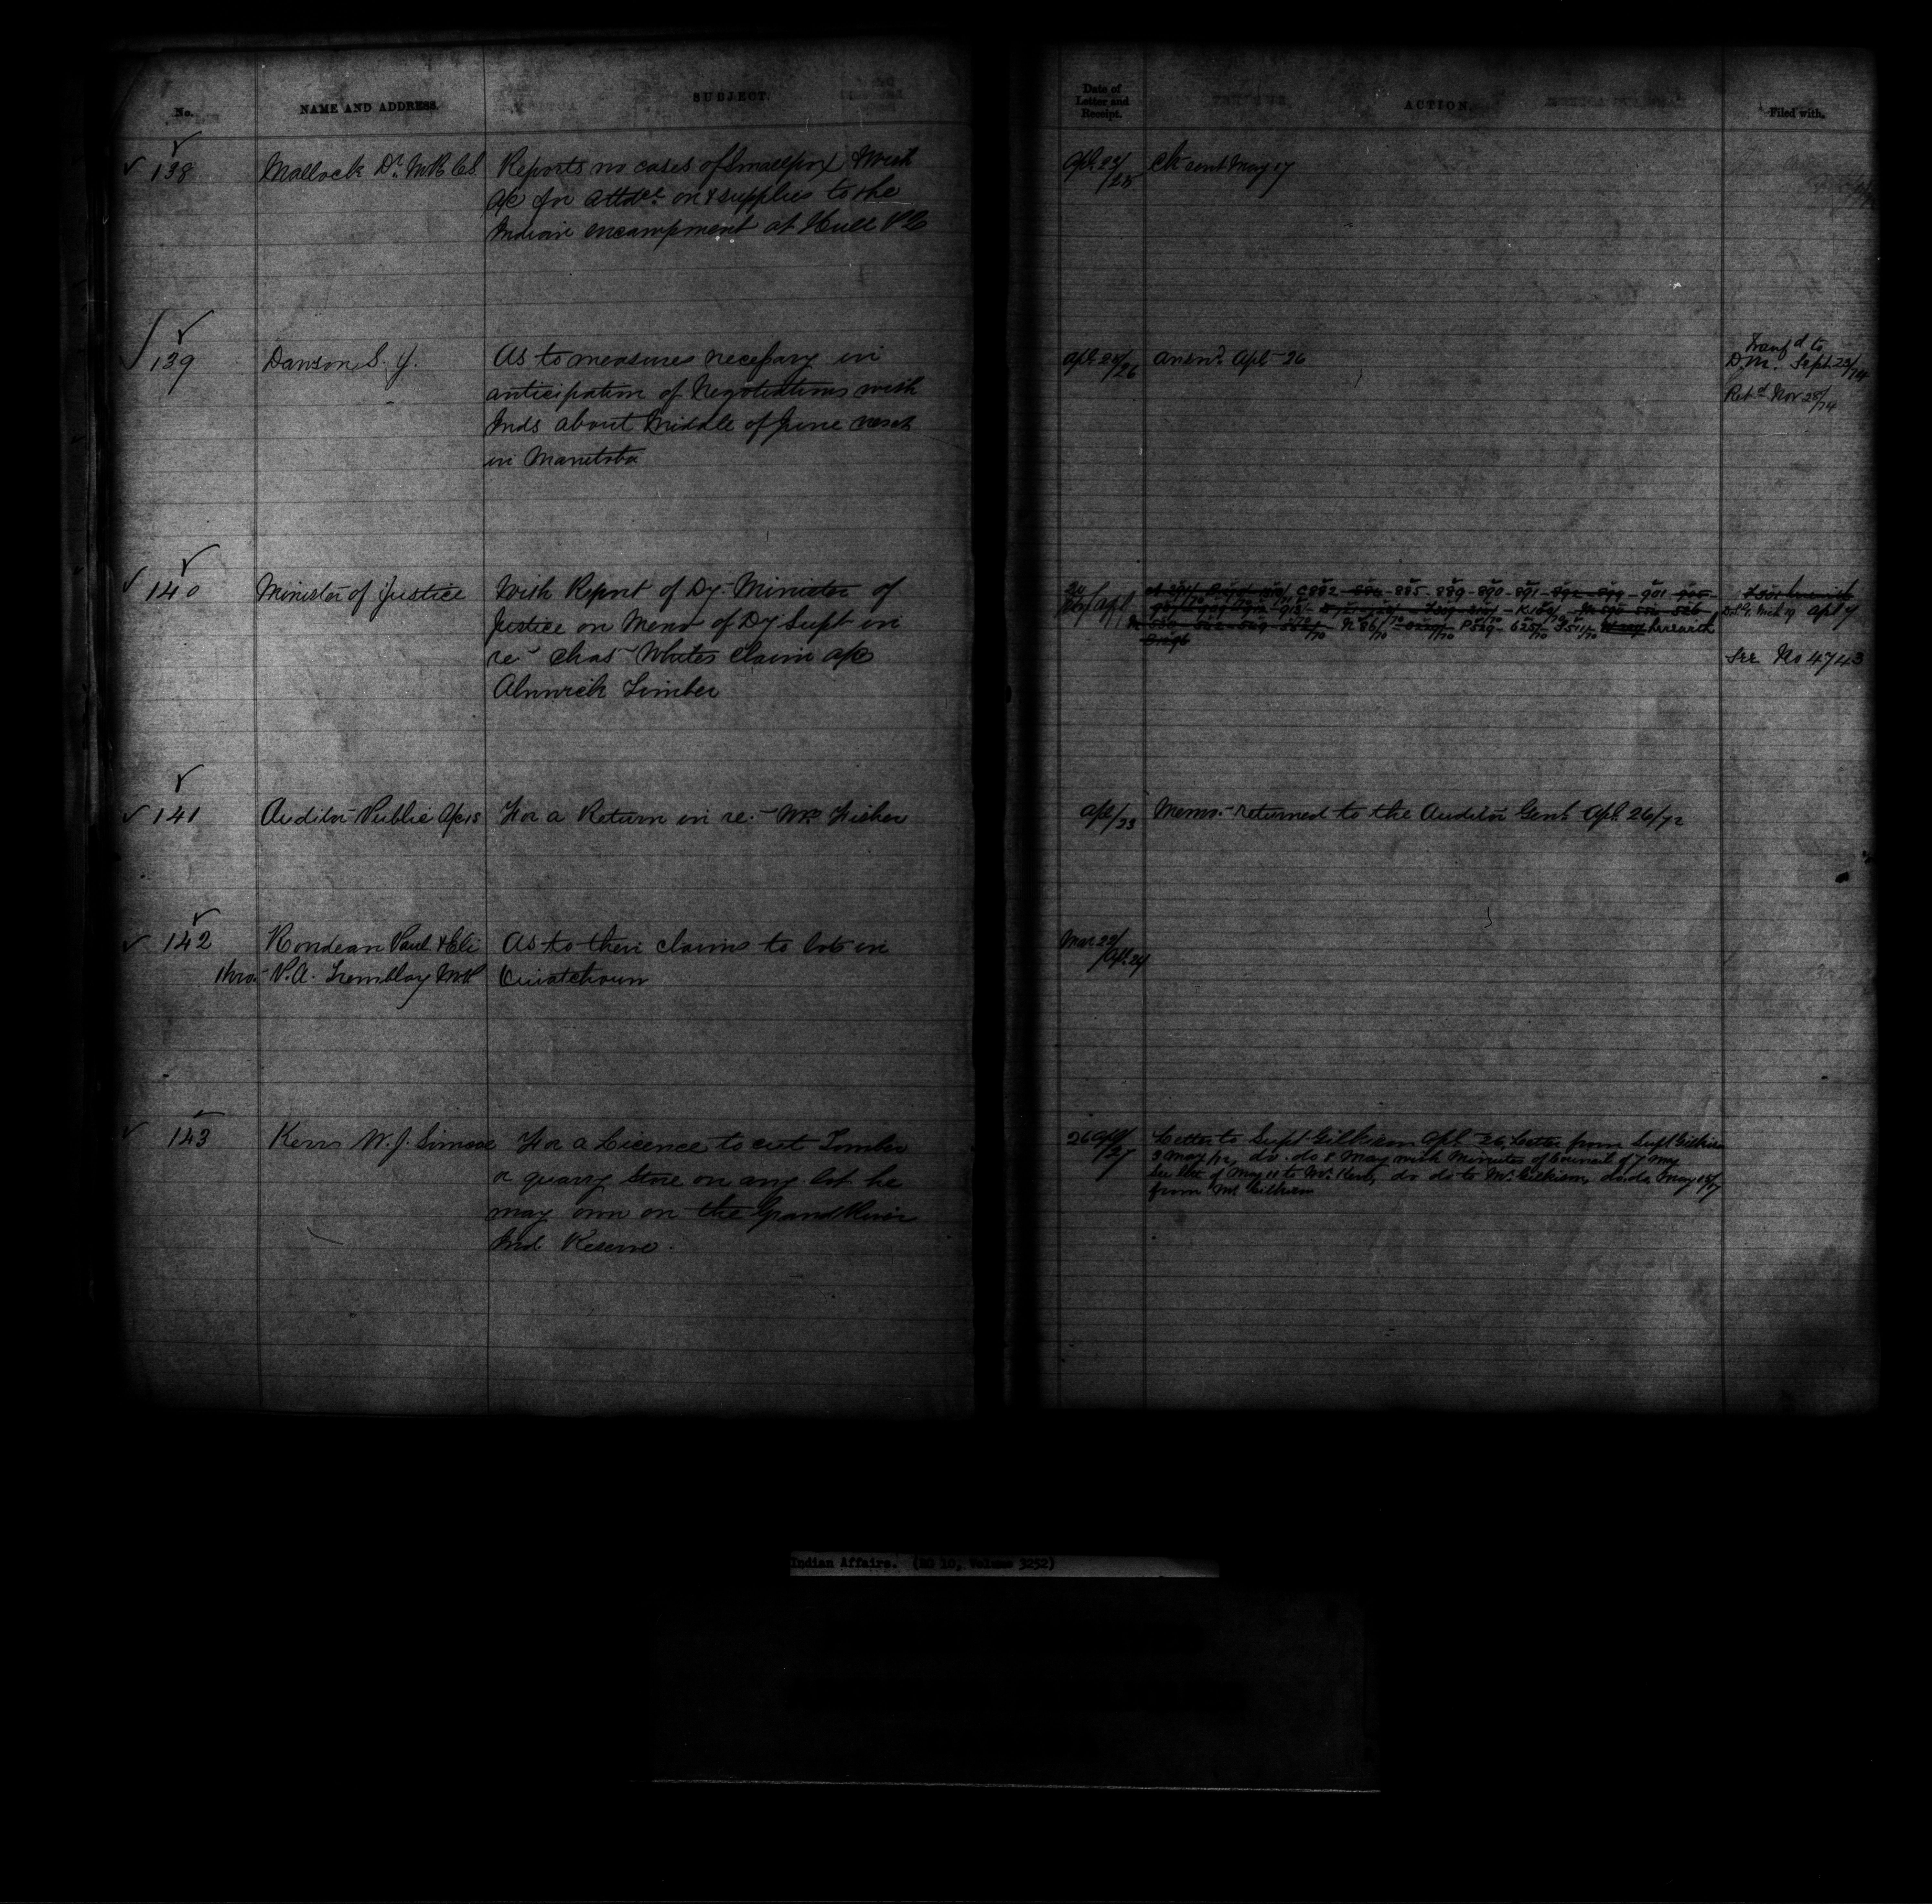 No.
NAME AND ADDRESS.
SUBJECT.
Date of
Letter and
Receipt.
ACTION.
Filed with.
138
Mallock Dr.
Reports no cases of Smallpox With
a/c for attdce on & supplies to the
Indian encampment at Hull PQ
Apl 22/25
Ck sent May 17
139
Dawson S. J.
As to measures necessary in
anticipation of Negotiations with
Inds about Middle of June next
in Manitoba
Apl 25/26
Answd. Apl 26
Transfd to
D.M. Sept 23/74
Retd Nov 28/74
140
Minister of Justice
With Report of Dy. Minister of
Justice on Memo of Dy Supt in
re Chas White's Claim a/c
Alnwick Timber
C882 - 884 - 885 - 889 - 890 - 891 - 892 - 899 - 901 - 905
herewith
See No 4743
141
Auditor Public Accts
For a Return in re. Mr Fisher
Apl/23
Memo. returned to the Auditor Genl. Apl. 26/72
142
Rondeau Paul & Eli
thro. P.A. Tremblay MP
As to their claims to lots in
Ouiatchouan
Mar 22/
Apl. 24
143
Kerr W. J. Simcoe
For a Licence to cut Timber
or quarry Stone on any lot he
may own on the Grand River
Ind. Reserve.
26 Apl/27
Letter to Supt Gilkison Apl. 26, Letter from Supt Gilkison
3 May/72, do. do 8 May with Minutes of Council of 7 May
See let of May 11 to Mr. Kerr, do do to Mr. Gilkison, do do May 15/17
from Mr Gilkison
Indian Affairs. (RG 10, Volume 3252)